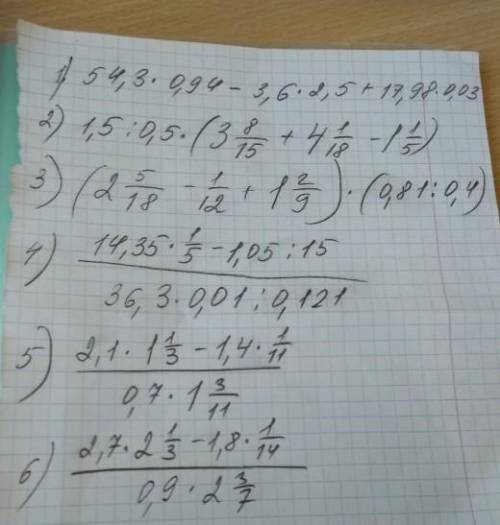 1) 54,3 · 0,94 − 3,6 · 2,5 + 17,98 · 0,03
2) 1,5 : 0,5 · (3 8/15 + 4 1/18 − 1 1/5)
3) (2 5/18 − 1/12 + 1 2/9) · (0,81 : 0,4)
4) (14,35 · 1/5 − 1,05 : 15) / (36,3 · 0,01 : 0,121)
5) (2,1 · 1 1/3 − 1,4 · 1/11) / (0,7 · 1 3/11)
6) (2,7 · 2 1/3 − 1,8 · 1/14) / (0,9 · 2 3/7)